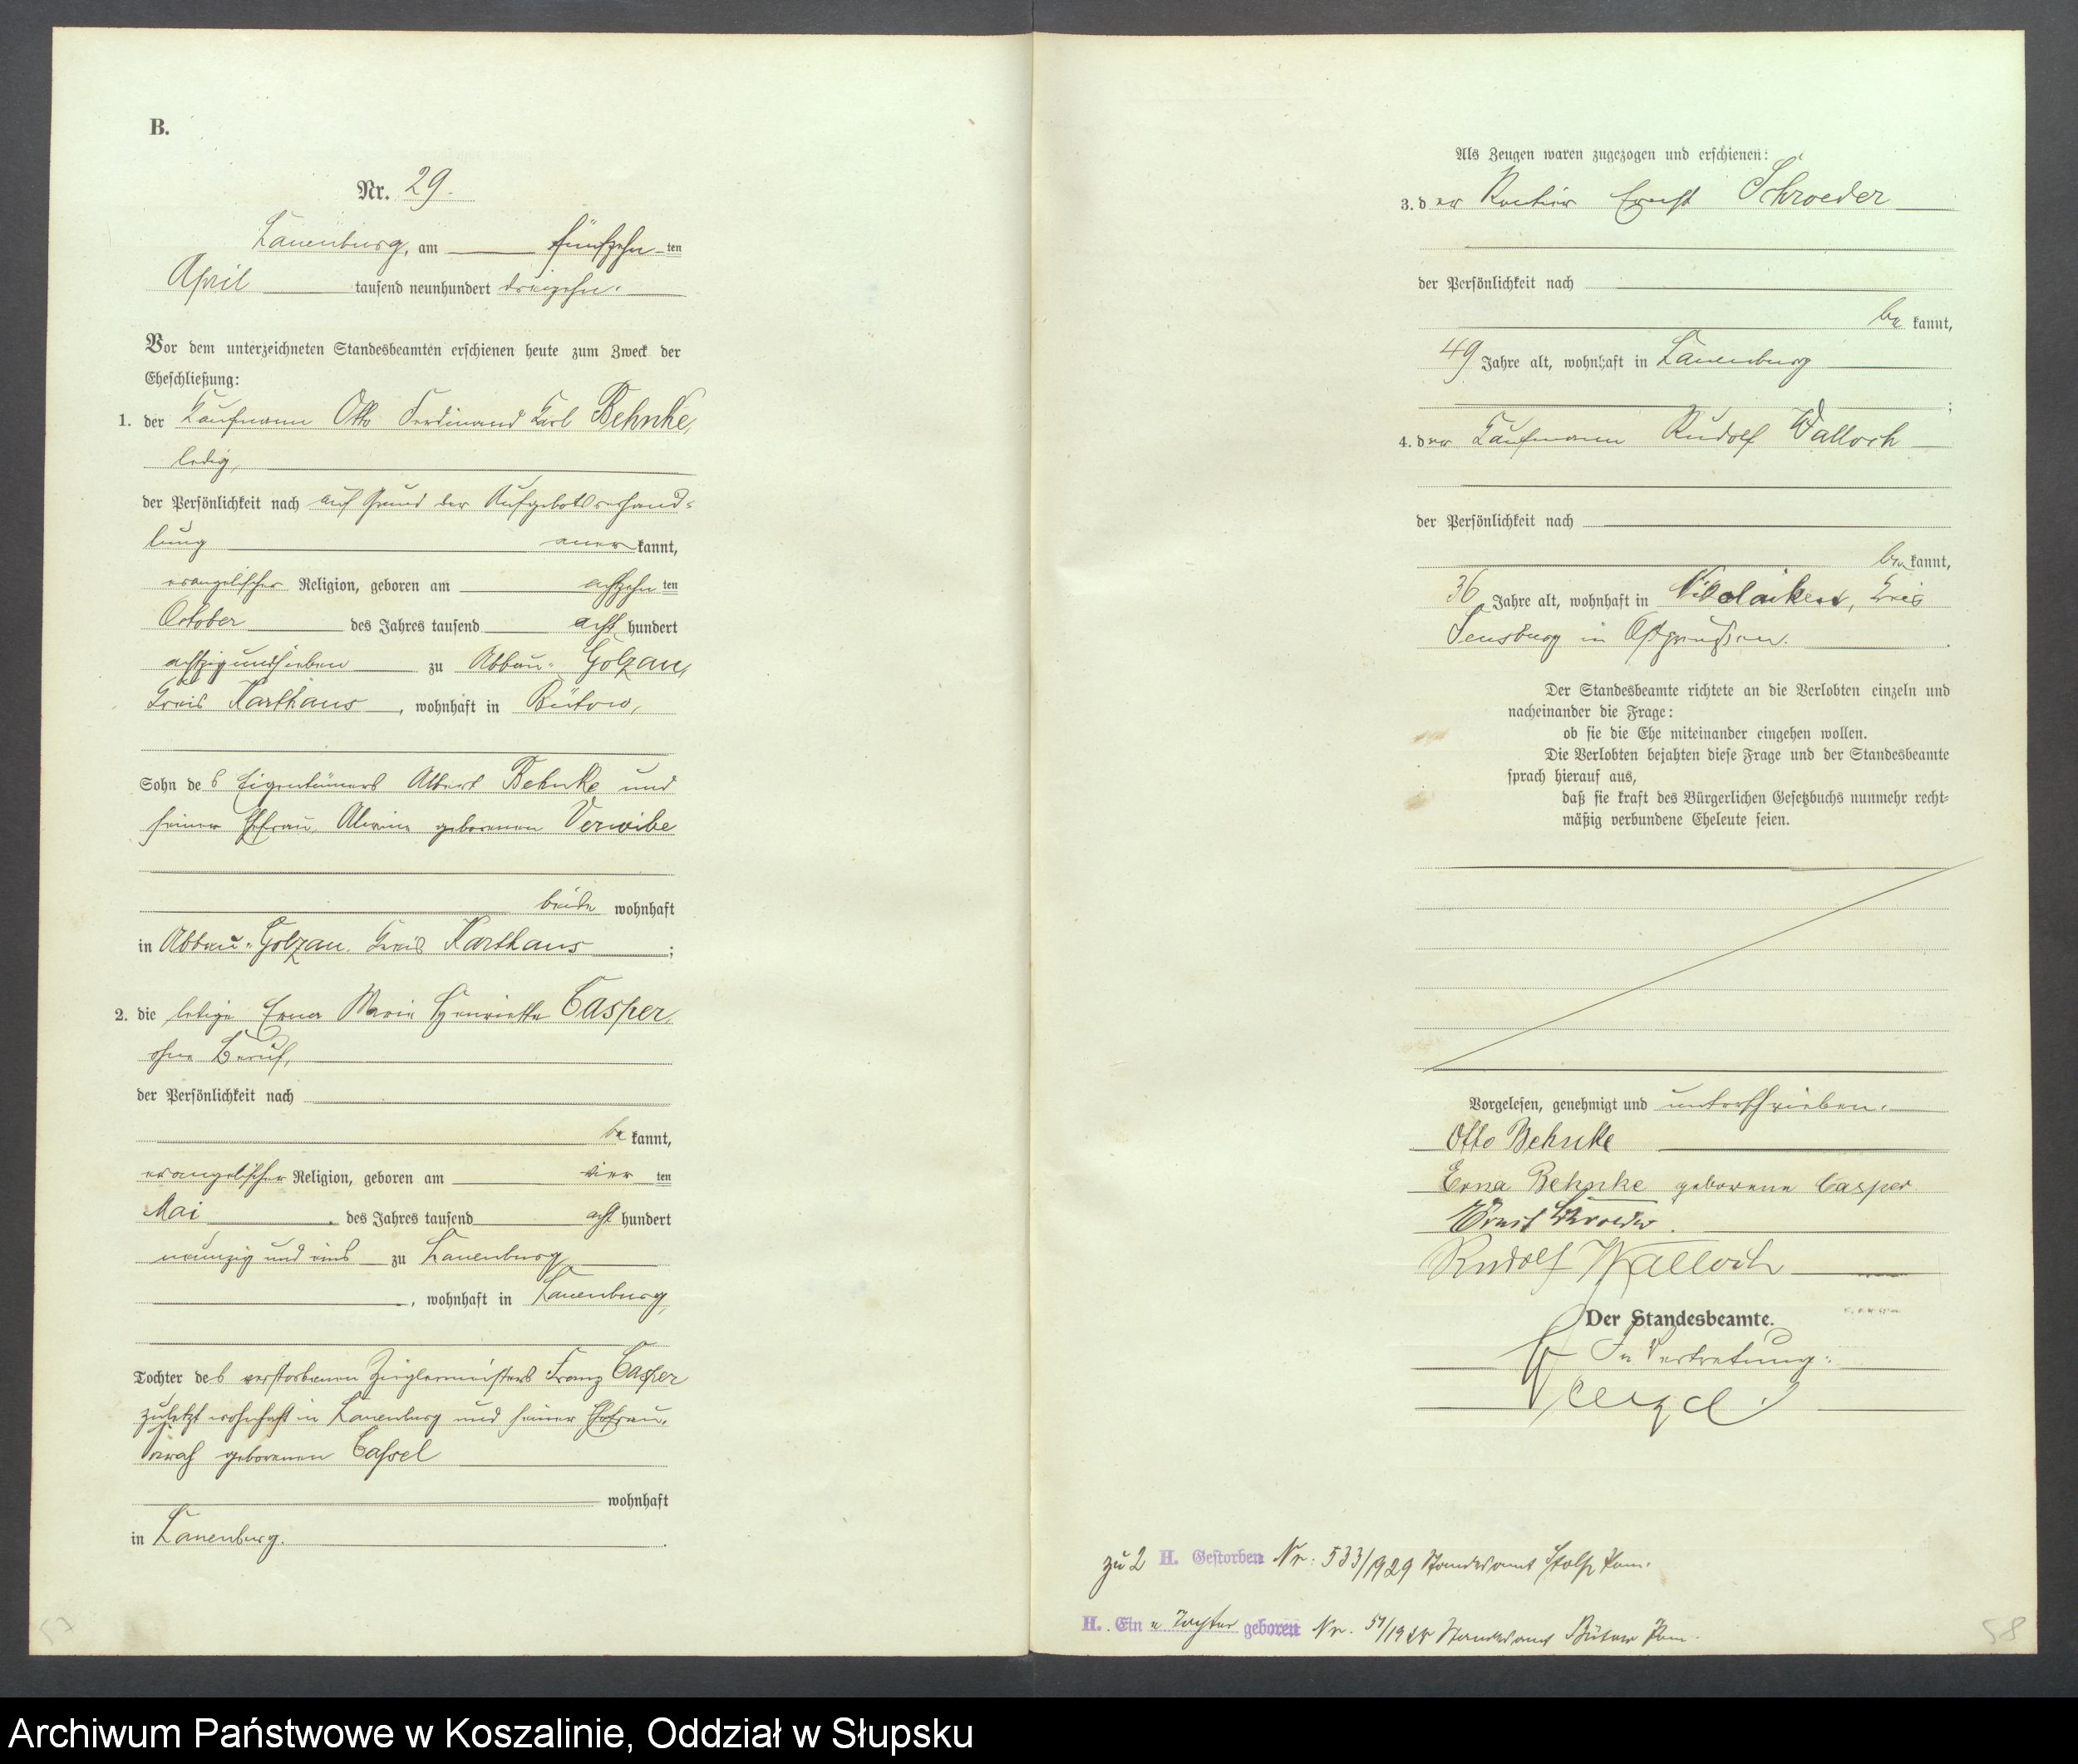 B.
Nr. 29.
Lauenburg, am fünfzehn ten
April tausend neunhundert dreizehn.
Vor dem unterzeichneten Standesbeamten erschienen heute zum Zweck der
Eheschließung:
1. der Kaufmann Otto Ferdinand Karl Behnke,
ledig,
der Persönlichkeit nach auf Grund der Aufgebotsverhand-
lung aner kannt,
evangelischer Religion, geboren am achtzehn ten
October des Jahres tausend acht hundert
achtzig und sieben zu Abbau-Golzau,
Kreis Karthaus, wohnhaft in Bütow,
Sohn des Eigentümers Albert Behnke und
seiner Ehefrau, Alwine geborenen Verwibe
beide wohnhaft
in Abbau-Golzau. Kreis Karthaus;
2. die ledige Erna Marie Henriette Casper,
ohne Beruf,
der Persönlichkeit nach
be kannt,
evangelischer Religion, geboren am vier ten
Mai des Jahres tausend acht hundert
neunzig und eins zu Lauenburg
, wohnhaft in Lauenburg,
Tochter des verstorbenen Zieglermeisters Franz Casper
zuletzt wohnhaft in Lauenburg und seiner Ehefrau,
geborenen Cassel
wohnhaft
in Lauenburg.
57
Als Zeugen waren zugezogen und erschienen:
3. der Rentier Ernst Schroeder
der Persönlichkeit nach
be kannt,
49 Jahre alt, wohnhaft in Lauenburg
;
4. der Kaufmann Rudolf Walloch
der Persönlichkeit nach
be kannt,
36 Jahre alt, wohnhaft in Nikolaiken, Kreis
Sensburg in Ostpreußen.
Der Standesbeamte richtete an die Verlobten einzeln und
nacheinander die Frage:
ob sie die Ehe miteinander eingehen wollen.
Die Verlobten bejahten diese Frage und der Standesbeamte
sprach hierauf aus,
daß sie kraft des Bürgerlichen Gesetzbuchs nunmehr recht-
mäßig verbundene Eheleute seien.
Vorgelesen, genehmigt und unterschrieben.
Otto Behnke
Erna Behnke geborene Casper
Ernst Schroeder.
Rudolf Walloch
Der Standesbeamte.
In Vertretung:
zu 2 H. Gestorben Nr. 533/1929 Standesamt Stolp Pom.
H. Eine Tochter geboren Nr. Standesamt Bütow Pom.
58
Archiwum Państwowe w Koszalinie, Oddział w Słupsku